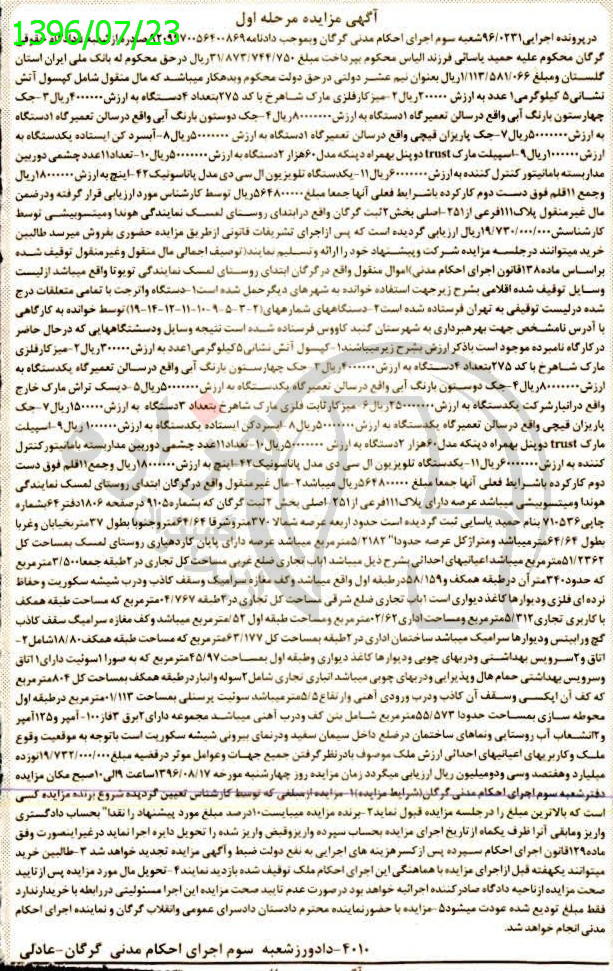 آگهی مزایده مرحله اول
1396/07/23
درپرونده اجرایی ۹۶/۰۲۳۱ شعبه سوم اجرای احکام مدنی گرگان وبموجب دادنامه
گرگان محکوم علیه حمید یاسائی فرزند الیاس محکوم بپرداخت مبلغ ۳۱/۸۷۳/۷۴۴/۷۵۰ریال درحق محکوم له بانک ملی ایران استان
گلستان ومبلغ ۱/۱۱۳/۵۸۱/۰۶۶ریال بعنوان نیم عشر دولتی درحق دولت محکوم وبدهکار میباشد که مال منقول شامل کپسول آتش
نشانی۵ کیلوگرمی۱ عدد به ارزش ۲-میزکارفلزی مارک شاهرخ با کد ۲۷۵بتعداد ۴دستگاه به ارزش ۳-جک
چهارستون بارنگ آبی واقع درسالن تعمیرگاه ۱دستگاه به ارزش ۴-جک دوستون بارنگ آبی واقع درسالن تعمیرگاه ۱دستگاه
به ارزش ۷-جک پاریزان قیچی واقع درسالن تعمیرگاه ۱دستگاه به ارزش ۸-آبسرد کن ایستاده یکدستگاه به
ارزش ۹-اسپیلت مارک trust دوپنل بهمراه دینکه مدل ۶۰هزار ۲دستگاه به ارزش ۱۰-تعداد۱۱عدد چشمی دوربین
مداربسته بامانیتور کنترل کننده به ارزش ۱۱-یکدستگاه تلویزیون ال سی دی مدل پاناسونیک۴۲-اینچ به ارزش
وجمع ۱۱قلم فوق دست دوم کارکرده باشرایط فعلی آنها جمعا مبلغ توسط کارشناس مورد ارزیابی قرار گرفته ودرضمن
مال غیرمنقول پلاک۱۱۱فرعی از۲۵۱-اصلی بخش۲ثبت گرگان واقع درابتدای روستای لمسک نمایندگی هوندا ومیتسوبیشی توسط
کارشناسش۱۹/۷۳۰/۰۰۰/۰۰۰ریال ارزیابی گردیده است که پس ازاجرای تشریفات قانونی ازطریق مزایده حضوری بفروش میرسد طالبین
خرید میتوانند درجلسه مزایده شرکت وپیشنهاد خود را ارائه وتسلیم نمایند(توصیف اجمالی مال منقول وغیرمنقول توقیف شده
براساس ماده۱۳۸قانون اجرای احکام مدنی)اموال منقول واقع درگرگان ابتدای روستای لمسک نمایندگی تویوتا واقع میباشد ازلیست
وسایل توقیف شده اقلامی بشرح زیرجهت استفاده خوانده به شهرهای دیگرحمل شده است۱-دستگاه واترجت با تمامی متعلقات درج
شده درلیست توقیفی به تهران فرستاده شده است۲-دستگاههای شمارهای(۲-۳-۵-۹-۱۰-۱۱-۱۲-۱۴-۱۹)توسط خوانده به کارگاهی
با آدرس نامشخص جهت بهرهبرداری به شهرستان گنبد کاووس فرستاده شده است نتیجه وسایل ودستگاههایی که درحال حاضر
درکارگاه نامبرده موجود است باذکر ارزش بشرح زیرمیباشند۱-کپسول آتش نشانی۵کیلوگرمی۱عدد به ارزش ۲-میزکارفلزی
مارک شاهرخ با کد ۲۷۵بتعداد ۴دستگاه به ارزش ۳-جک چهارستون بارنگ آبی واقع درسالن تعمیرگاه یکدستگاه به
ارزش ۴-جک دوستون بارنگ آبی واقع درسالن تعمیرگاه یکدستگاه به ارزش ۵-دیسک تراش مارک خارج
واقع درانبارشرکت یکدستگاه به ارزش ۶-میزکارثابت فلزی مارک شاهرخ بتعداد ۳دستگاه به ارزش ۷-جک
پاریزان قیچی واقع درسالن تعمیرگاه یکدستگاه به ارزش ۸-آبسردکن ایستاده یکدستگاه به ارزش ۹-اسپیلت
مارک trust دوپنل بهمراه دینکه مدل۶۰هزار ۲دستگاه به ارزش ۱۰-تعداد۱۱عدد چشمی دوربین مداربسته بامانیتورکنترل
کننده به ارزش ۱۱-یکدستگاه تلویزیون ال سی دی مدل پاناسونیک۴۲-اینچ به ارزش وجمع۱۱قلم فوق دست
دوم کارکرده باشرایط فعلی آنها جمعا مبلغ میباشد۲-مال غیرمنقول واقع درگرگان ابتدای روستای لمسک نمایندگی
هوندا ومیتسوبیسی میباشد عرصه دارای پلاک۱۱۱فرعی از۲۵۱-اصلی بخش ۲ثبت گرگان که بشماره۹۱۰۵ درصفحه ۱۸۰۶دفتر ۶۴بشماره
چاپی۷۱۰۵۳۶ بنام حمید یاسایی ثبت گردیده است حدود اربعه عرصه شمالا ۳۷۰متروشرقا ۶۴/۶۴متروجنوبا بطول ۳۷متربخیابان وغربا
بطول ۶۴/۶۴مترمیباشد ومتراژکل عرصه حدودا" ۵/۲۱۸۲مترمربع میباشد عرصه دارای پایان کاردهیاری روستای لمسک بمساحت کل
۵۱/۲۳۶۲مترمربع میباشد اعیانیهای احداثی بشرح ذیل میباشد ۱باب تجاری ضلع غربی مساحت کل تجاری در۲طبقه جمعا۳/۵۰۰مترمربع
که حدود۳۴۰مترآن درطبقه همکف و۵۸/۱۵۹درطبقه اول واقع میباشد وکف مغازه سرامیک وسقف کاذب ودرب شیشه سکوریت وحفاظ
نرده ای فلزی ودیوارها کاغذ دیواری است ۱باب تجاری ضلع شرقی مساحت کل تجاری در۲طبقه ۰۴/۷۶۷مترمربع که مساحت طبقه همکف
با کاربری تجاری۵/۳۱۲مترمربع ومساحت اداری۰۲/۶۲مترمربع ومساحت طبقه اول ۵۲/مترمربع میباشد وکف مغازه سرامیک سقف کاذب
گچ ورابیتس ودیوارها سرامیک میباشد ساختمان اداری در۲طبقه بمساحت کل ۶۳/۱۷۷مترمربع که مساحت طبقه همکف۱۸/۸۰شامل۲-
اتاق و۲سرویس بهداشتی ودربهای چوبی ودیوارها کاغذ دیواری وطبقه اول بمساحت۴۵/۹۷مترمربع که به صورا ۱سوئیت دارای۱اتاق
وسرویس بهداشتی حمام هال وپذیرایی ودربهای چوبی میباشد انباری تجاری شامل۲سوله وانباردرطبقه همکف بمساحت کل ۸۰۴مترمربع
که کف آن اپکسی وسقف آن کاذب ودرب ورودی آهنی وارتفاع۵/۵مترمیباشد سوئیت پرسنلی بمساحت ۰۱/۱۱۳مترمربع درطبقه اول
محوطه سازی بمساحت حدودا ۵۵/۵۷۳مترمربع شامل بتن کف ودرب آهنی میباشد مجموعه دارای۲برق ۳فاز۱۰۰-آمپر و۱۲۵آمپر
و۲انشعاب آب روستایی ونماهای ساختمان درضلع داخل سیمان سفید ودرنمای بیرونی شیشه سکوریت است باتوجه به موقعیت وقوع
ملک وکاربریهای اعیانیهای احداثی ارزش ملک موصوف بادرنظر گرفتن جمیع جهات وعوامل موثر درقضیه مبلغ۱۹/۷۳۲/۰۰۰/۰۰۰نوزده
میلیارد وهفتصد وسی ودومیلیون ریال ارزیابی میگردد زمان مزایده روز چهارشنبه مورخه ۱۳۹۶/۰۸/۱۷ساعت ۹الی۱۰صبح مکان مزایده
دفترشعبه سوم اجرای احکام مدنی گرگان(شرایط مزایده)۱-مزایده ازمبلغی که توسط کارشناس تعیین گردیده شروع برنده مزایده کسی
است که بالاترین مبلغ را درجلسه مزایده قبول نماید۲-برنده مزایده میبایست۱۰درصد مبلغ مورد پیشنهاد را نقدا" بحساب دادگستری
واریز ومابقی آنرا ظرف یکماه ازتاریخ اجرای مزایده بحساب سپرده واریزوقبض واریز شده را تحویل دایره اجرا نماید درغیراینصورت وفق
ماده۱۲۹قانون اجرای احکام سپرده پس ازکسرهزینه های اجرایی به نفع دولت ضبط وآگهی مزایده تجدید خواهد شد ۳-طالبین خرید
میتوانند یکهفته قبل ازاجرای مزایده با هماهنگی این اجرای احکام ملک توقیف شده بازدید نمایند۴-تحویل مال مورد مزایده پس ازتایید
صحت مزایده ازناحیه دادگاه صادرکننده اجرائیه خواهد بود درصورت عدم تایید صحت مزایده این اجرا مسئولیتی دررابطه با خریدارندارد
فقط مبلغ تودیع شده عودت میشود۵-مزایده با حضورنماینده محترم دادستان دادسرای عمومی وانقلاب گرگان و نماینده اجرای احکام
مدنی انجام خواهد شد.
۴۰۱۰-دادورزشعبه سوم اجرای احکام مدنی گرگان-عادلی